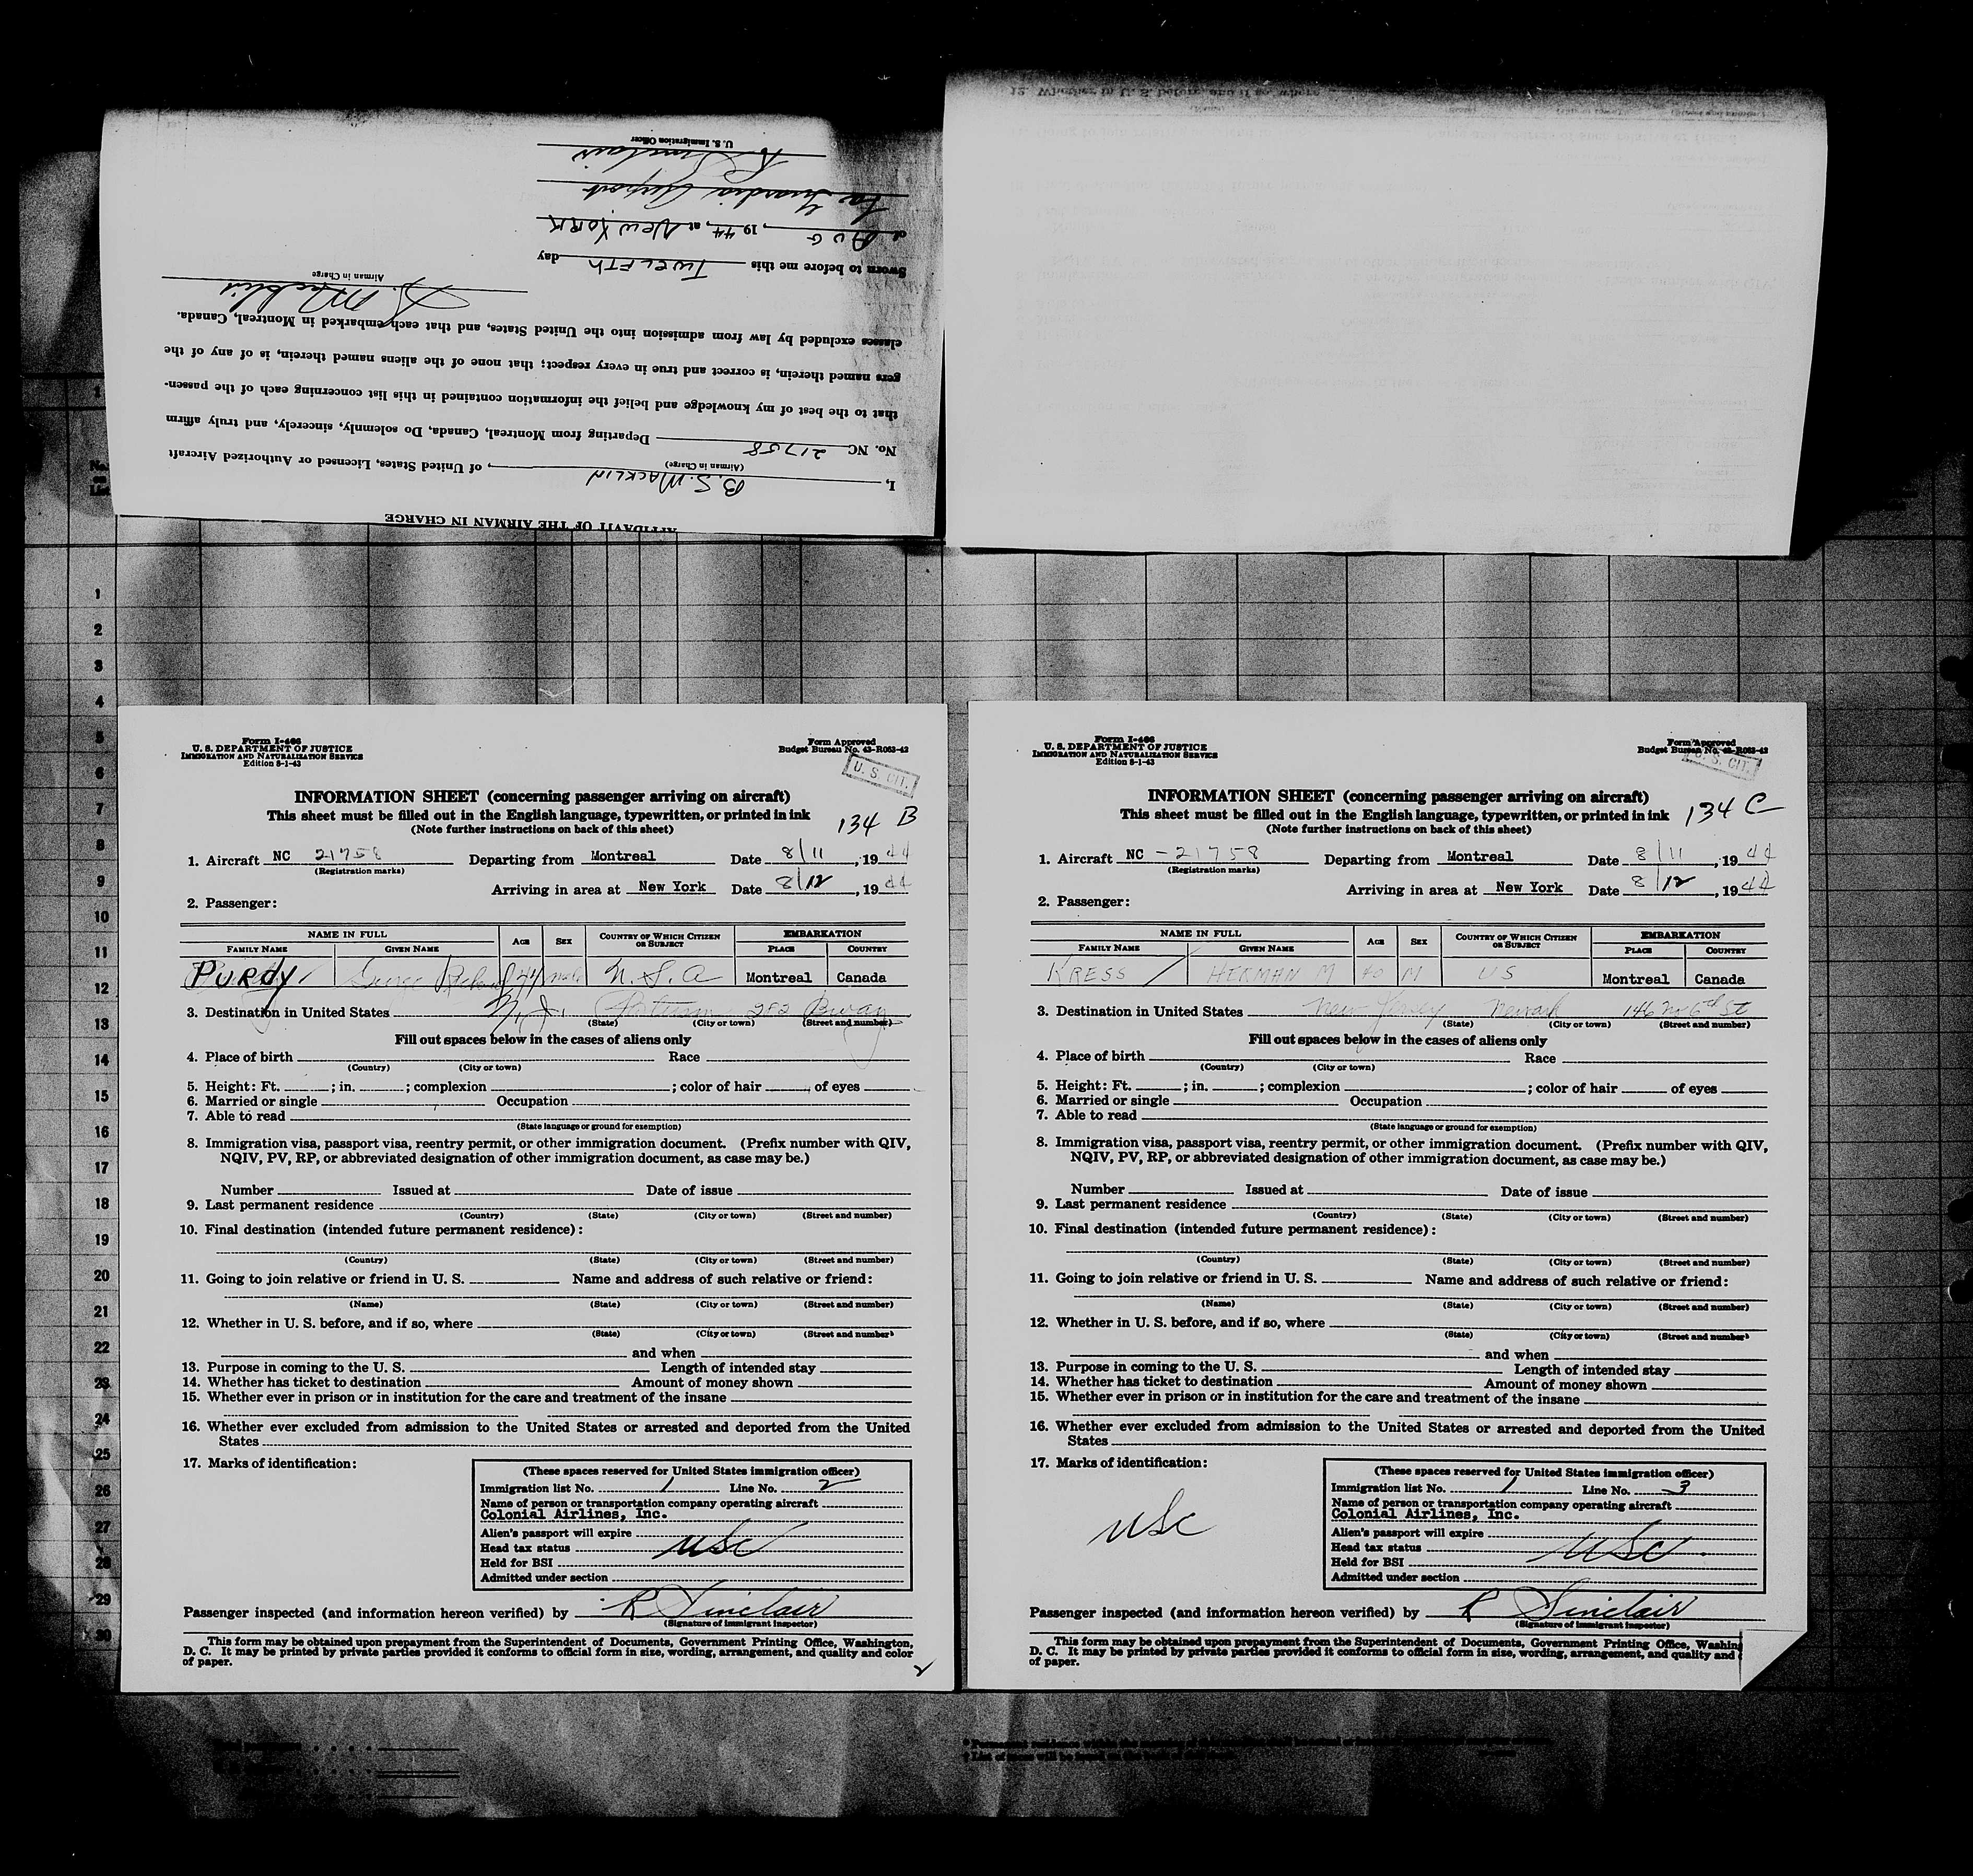 AFFIDAVIT OF THE AIRMAN IN CHARGE
I, B.S. MACKLIN, of United States, Licensed or Authorized Aircraft
(Airman in Charge)
No. NC 21758 Departing from Montreal, Canada, Do solemnly, sincerely, and truly affirm
that to the best of my knowledge and belief the information contained in this list concerning each of the passen-
gers named therein, is correct and true in every respect; that none of the aliens named therein, is of any of the
classes excluded by law from admission into the United States, and that each embarked in Montreal, Canada.
B. S. Macklin
Airman in Charge
Sworn to before me this TWELFTH day
AUG, 19 44, at NEW YORK
La Guardia Airport
R Sinclair
U. S. Immigration Officer
1
2
3
4
5
6
7
8
9
10
11
12
13
14
15
16
17
18
19
20
21
22
23
24
25
26
27
28
29
30
Form I-466
U. S. DEPARTMENT OF JUSTICE
IMMIGRATION AND NATURALIZATION SERVICE
Edition 8-1-43
Form Approved
Budget Bureau No. 43-R063-42
U. S. CIT.
INFORMATION SHEET (concerning passenger arriving on aircraft)
This sheet must be filled out in the English language, typewritten, or printed in ink
134 B
(Note further instructions on back of this sheet)
1. Aircraft NC 21758 Departing from Montreal Date 8/11, 19 44
(Registration marks)
Arriving in area at New York Date 8/12, 19 44
2. Passenger:
NAME IN FULL AGE SEX COUNTRY OF WHICH CITIZEN OR SUBJECT EMBARKATION
FAMILY NAME GIVEN NAME PLACE COUNTRY
PURDY George Richard 44 male U. S. A Montreal Canada
3. Destination in United States N. J. 282 Bway
(State) (City or town) (Street and number)
Fill out spaces below in the cases of aliens only
4. Place of birth Race
(Country) (City or town)
5. Height: Ft. ; in. ; complexion ; color of hair of eyes
6. Married or single Occupation
7. Able to read
(State language or ground for exemption)
8. Immigration visa, passport visa, reentry permit, or other immigration document. (Prefix number with QIV,
NQIV, PV, RP, or abbreviated designation of other immigration document, as case may be.)
Number Issued at Date of issue
9. Last permanent residence
(Country) (State) (City or town) (Street and number)
10. Final destination (intended future permanent residence):
(Country) (State) (City or town) (Street and number)
11. Going to join relative or friend in U. S. Name and address of such relative or friend:
(Name) (State) (City or town) (Street and number)
12. Whether in U. S. before, and if so, where
(State) (City or town) (Street and number)
and when
13. Purpose in coming to the U. S. Length of intended stay
14. Whether has ticket to destination Amount of money shown
15. Whether ever in prison or in institution for the care and treatment of the insane
16. Whether ever excluded from admission to the United States or arrested and deported from the United
States
17. Marks of identification:
(These spaces reserved for United States immigration officer)
Immigration list No. 1 Line No. 2
Name of person or transportation company operating aircraft
Colonial Airlines, Inc.
Alien's passport will expire
Head tax status USC
Held for BSI
Admitted under section
Passenger inspected (and information hereon verified) by R Sinclair
(Signature of immigrant inspector)
This form may be obtained upon prepayment from the Superintendent of Documents, Government Printing Office, Washington,
D. C. It may be printed by private parties provided it conforms to official form in size, wording, arrangement, and quality and color
of paper.
2
Form I-466
U. S. DEPARTMENT OF JUSTICE
IMMIGRATION AND NATURALIZATION SERVICE
Edition 8-1-43
Form Approved
Budget Bureau No. 43-R063-42
U. S. CIT.
INFORMATION SHEET (concerning passenger arriving on aircraft)
This sheet must be filled out in the English language, typewritten, or printed in ink
134 C
(Note further instructions on back of this sheet)
1. Aircraft NC - 21758 Departing from Montreal Date 8/11, 19 44
(Registration marks)
Arriving in area at New York Date 8/12, 19 44
2. Passenger:
NAME IN FULL AGE SEX COUNTRY OF WHICH CITIZEN OR SUBJECT EMBARKATION
FAMILY NAME GIVEN NAME PLACE COUNTRY
KRESS HERMAN M 40 M US Montreal Canada
3. Destination in United States New Jersey Newark 146 No 6th St
(State) (City or town) (Street and number)
Fill out spaces below in the cases of aliens only
4. Place of birth Race
(Country) (City or town)
5. Height: Ft. ; in. ; complexion ; color of hair of eyes
6. Married or single Occupation
7. Able to read
(State language or ground for exemption)
8. Immigration visa, passport visa, reentry permit, or other immigration document. (Prefix number with QIV,
NQIV, PV, RP, or abbreviated designation of other immigration document, as case may be.)
Number Issued at Date of issue
9. Last permanent residence
(Country) (State) (City or town) (Street and number)
10. Final destination (intended future permanent residence):
(Country) (State) (City or town) (Street and number)
11. Going to join relative or friend in U. S. Name and address of such relative or friend:
(Name) (State) (City or town) (Street and number)
12. Whether in U. S. before, and if so, where
(State) (City or town) (Street and number)
and when
13. Purpose in coming to the U. S. Length of intended stay
14. Whether has ticket to destination Amount of money shown
15. Whether ever in prison or in institution for the care and treatment of the insane
16. Whether ever excluded from admission to the United States or arrested and deported from the United
States
17. Marks of identification:
USC
(These spaces reserved for United States immigration officer)
Immigration list No. 1 Line No. 3
Name of person or transportation company operating aircraft
Colonial Airlines, Inc.
Alien's passport will expire
Head tax status USC
Held for BSI
Admitted under section
Passenger inspected (and information hereon verified) by R Sinclair
(Signature of immigrant inspector)
This form may be obtained upon prepayment from the Superintendent of Documents, Government Printing Office, Washing
D. C. It may be printed by private parties provided it conforms to official form in size, wording, arrangement, and quality and
of paper.